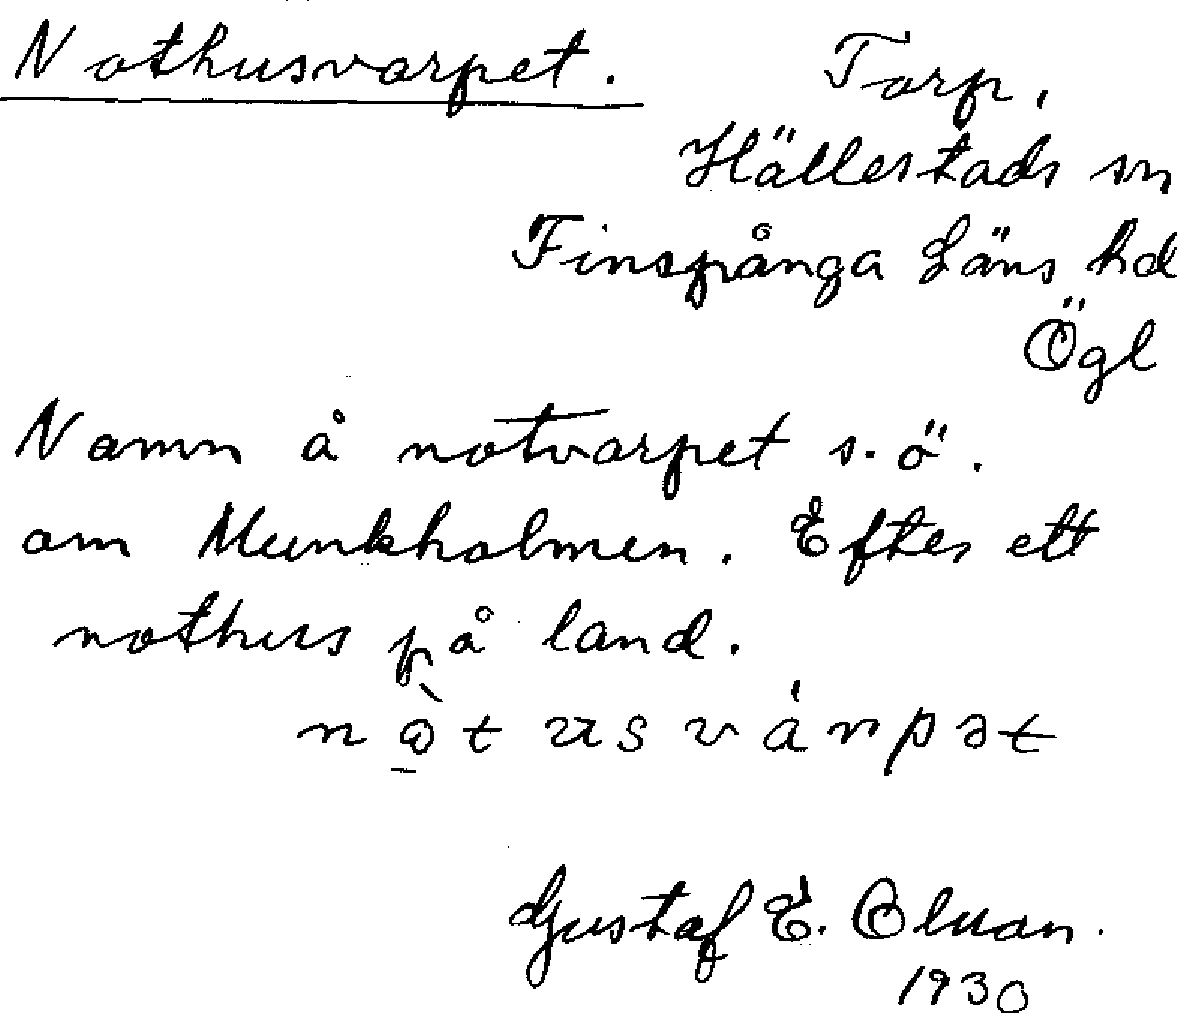 Nothusvarpet.
Torp,
Hällestads sn
Finspånga Läns hd
Ögl
Namn å notvarpet s.ö.
om Munkholmen. Efter ett
nothus på land.
Gustaf E.
1930